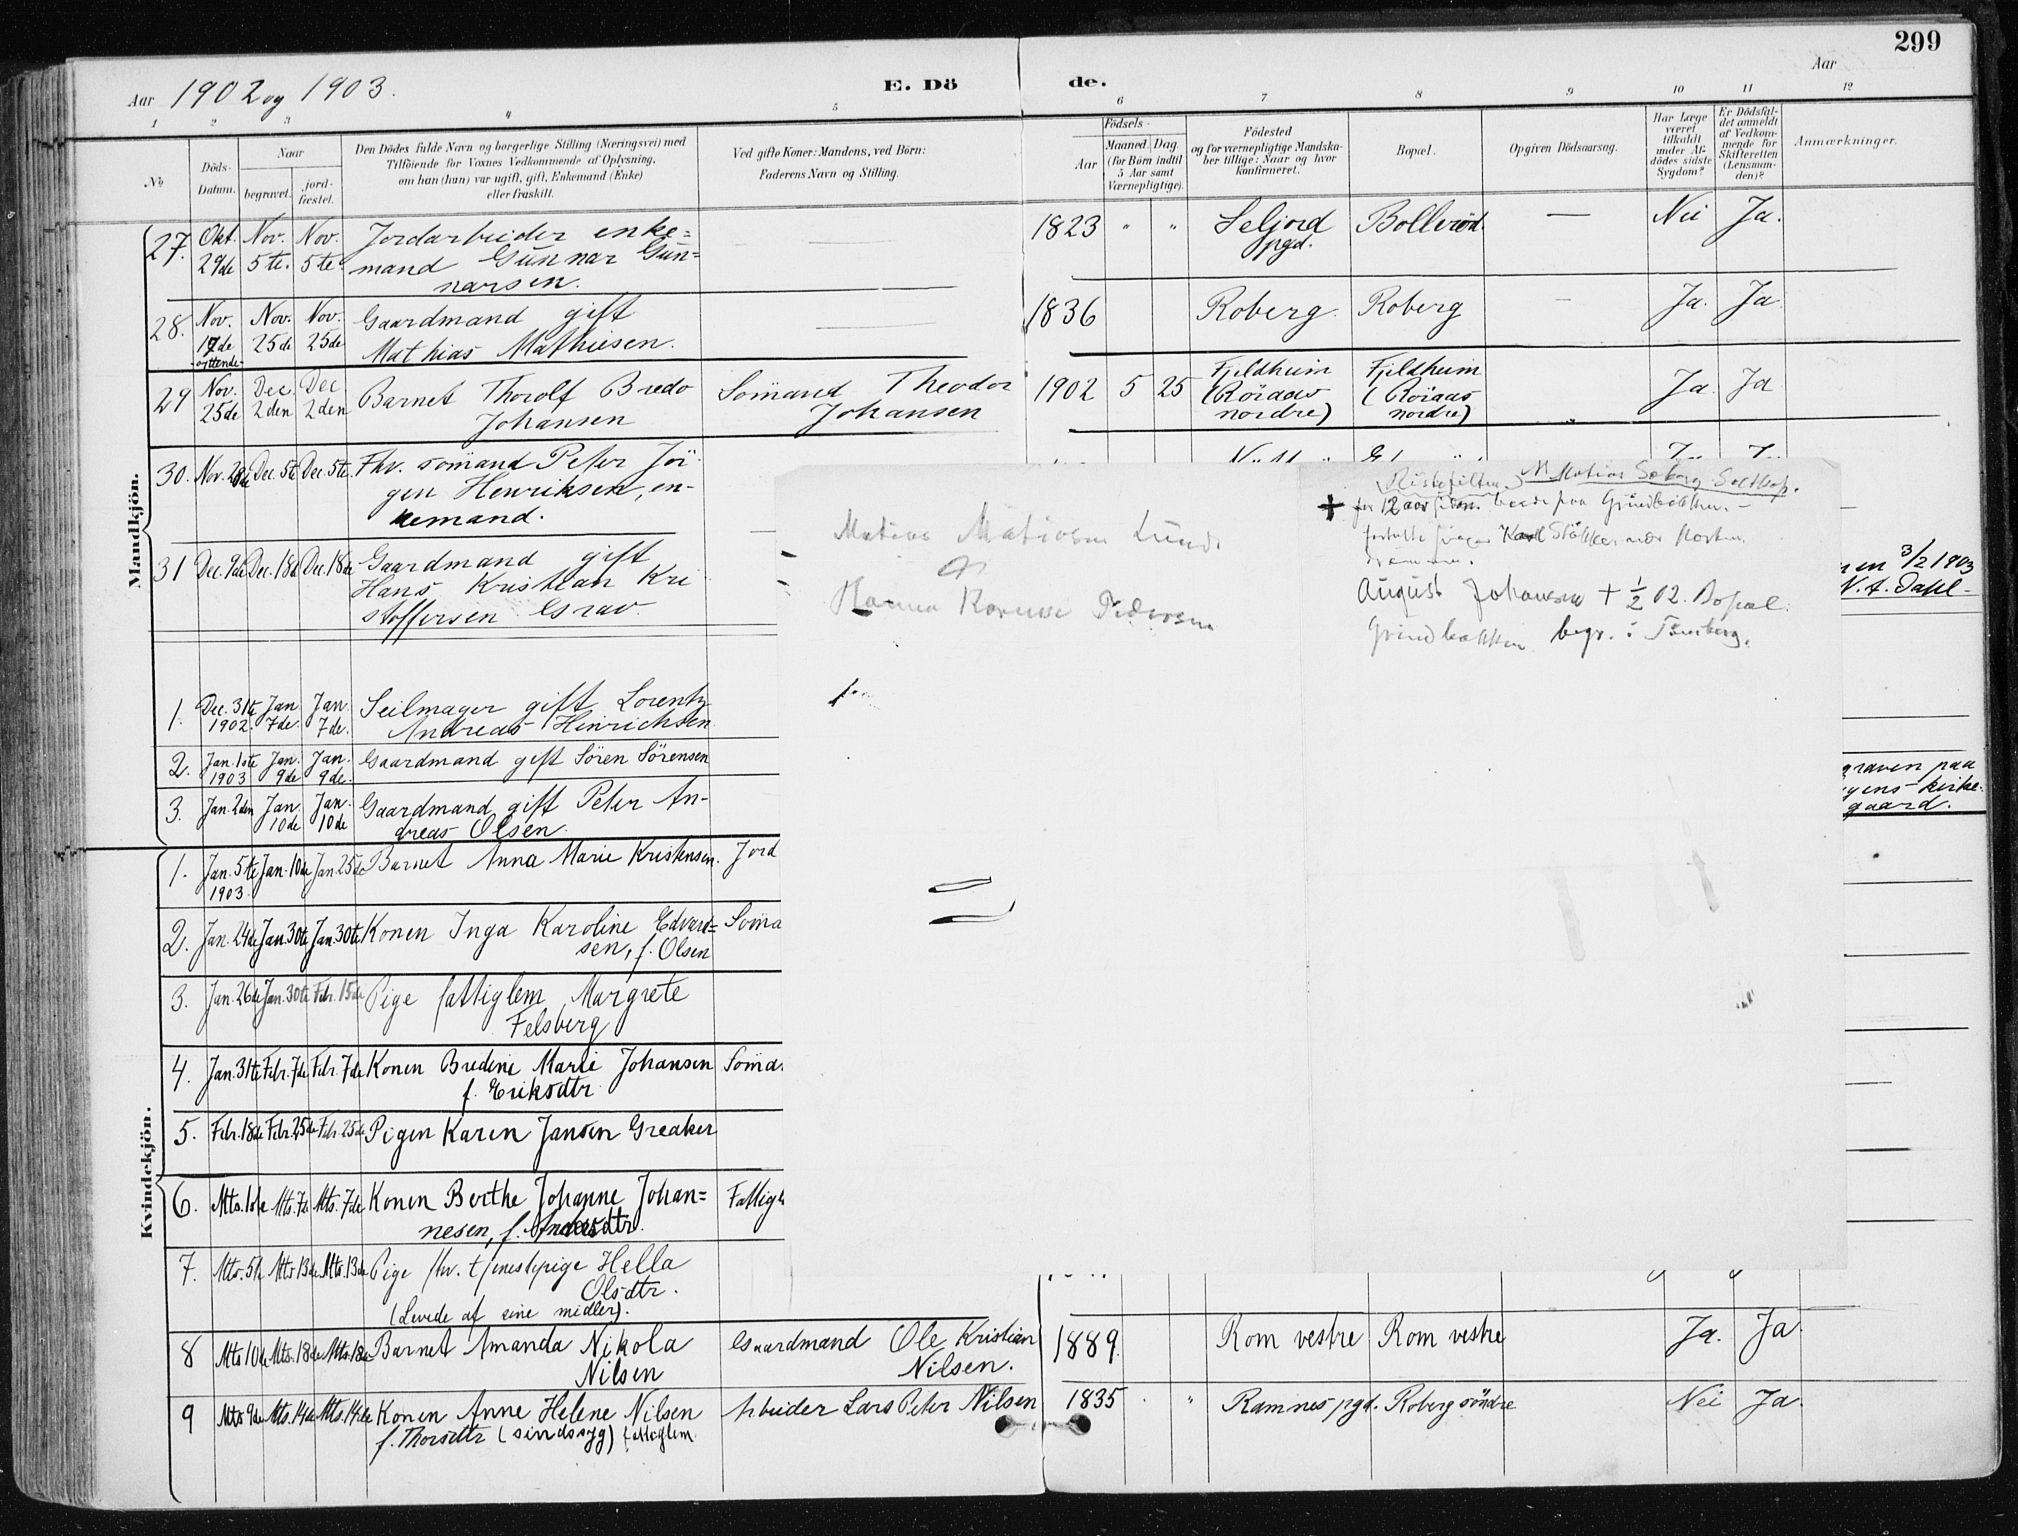 299
Aar 1902 og 1903.
E. Dö
de.
Aar
1 2 3 4 5 6 7 8 9 10 11 12
No
Döds-Datum.
Naar
begravet.
jord-fæstet.
Den Dödes fulde Navn og borgerlige Stilling (Næringsvei) med
Tilföiende for Voxnes Vedkommende af Oplysning,
om han (hun) var ugift, gift, Enkemand (Enke)
eller fraskilt.
Ved gifte Koner: Mandens, ved Börn:
Faderens Navn og Stilling.
Födsels-
Aar
Maaned. Dag.
(for Börn indtil
5 Aar samt
Værnepligtige).
Födested
og for værnepligtige Mandska-
ber tillige: Naar og hvor
konfirmeret.
Bopæl.
Opgiven Dödsaarsag.
Har Læge
været
tilkaldt
under Af-
dödes sidste
Sygdom?
Er Dödsfal-
det anmeldt
af Vedkom-
mende for
Skifteretten
(Lensman-
den)?
Anmærkninger.
Mandkjön.
27. Okt. 29de Nov. 5te. Nov. 5te. Jordarbeider enke=
mand Gunnar Gun=
narsen.
1823 " " Seljord pgd. Bolleröd. — Nei Ja.
28. Nov. 17de Nov. 25de Nov. 25de Gaardmand gift
Mathias Mathisen.
1836 Roberg. Roberg — Ja. Ja
29 Nov. 25de Dec. 2den Dec 2den Barnet Thorolf Bredo
Johansen
Sömand Theodor
Johansen
1902 5 25 Fjeldheim (Röraas nordre) Fjeldheim (Röraas nordre) Ja Ja
30. Nov. 28de Dec. 5te Dec. 5te Fhv. sömand Peter Jör-
gen Henriksen, en-
kemand.
31 Dec. 9de Dec. 18de Dec. 18de Gaardmand gift
Hans Kristian Kri
stoffersen Grav.
3/2 1903
N. A. Dahl
1. Dec. 31te 1902. Jan 7de. Jan. 7de. Seilmager gift Lorentz
Andreas Hinrichsen
2. Jan. 1ste 1903 Jan. 9de Jan. 9de. Gaardmand gift Sören Sörensen
3. Jan. 2den Jan. 10de Jan. 10de Gaardmand gift Peter An-
dreas Olsen.
graven paa
gens kirke-
gaard.
Kvindekjön.
1. Jan. 5te 1903. Jan. 10de Jan. 25de Barnet Anna Marie Kristensen. Jord
2. Jan. 24de Jan. 30te Jan. 30te Konen Inga Karoline Edvard=
sen, f. Olsen
Söma
3. Jan. 26de Jan. 30te Febr. 15de Pige fattiglem Margrete
Felsberg
4. Jan. 31te Febr. 7de Febr. 7de Konen Bredine Marie Johansen
f. Eriksdtr
Söma
5. Febr. 18de Febr. 25de Febr. 25de Pigen Karen Jansen Greaker
6. Mts. 1ste Mts. 7de Mts. 7de Konen Berthe Johanne Johan=
nesen, f. Andersdtr.
Fattig
7. Mts. 5te Mts 13de Mts. 13de Pige fhv. tjenestepige Hella
Olsdtr.
(Levede af sine midler).
8 Mts 10de Mts. 18de Mts. 18de Barnet Amanda Nikola
Nilsen
Gaardmand Ole Kristian
Nilsen.
1889. Rom vestre Rom vestre Ja. Ja.
9 Mts 9de Mts. 14de Mts. 14de Konen Anne Helene Nilsen
f. Thorsdtr (sindssyg) fattiglem
Arbeider Lars Peter Nilsen
1835 " Ramnes pgd. Roberg söndre Nei Ja.
Matias Matiesen Lund
og
Hanna Karense Pedersen
M. Matias Soberg
for 12 aar siden paa Grindbakken. -
August Johansen + 1/2 02. Bopæl.
Grindbakken begr. i Tönsberg.